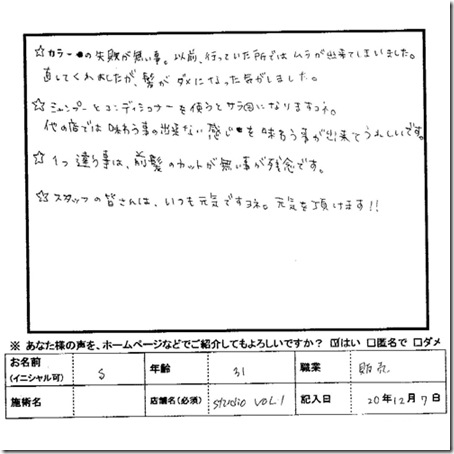 ☆カラーの失敗が無い事。以前、行っていた所ではムラが出来てしまいました。
直してくれましたが、髪がダメになった気がしました。
☆シャンプーとコンディショナーを使うとサラ図になりますネ。
他の店では味わう事の出来ない感じを味わう事が出来てうれしいです。
☆1つ違う事は、前髪のカットが無い事が残念です。
☆スタッフの皆さんは、いつも元気ですネ。元気を頂けます!!
※ あなた様の声を、ホームページなどでご紹介してもよろしいですか? ☑はい □匿名で □ダメ
お名前 (イニシャル可) S 年齢 31 職業 販売
施術名 店舗名(必須) studio VOL.1 記入日 20年12月7日